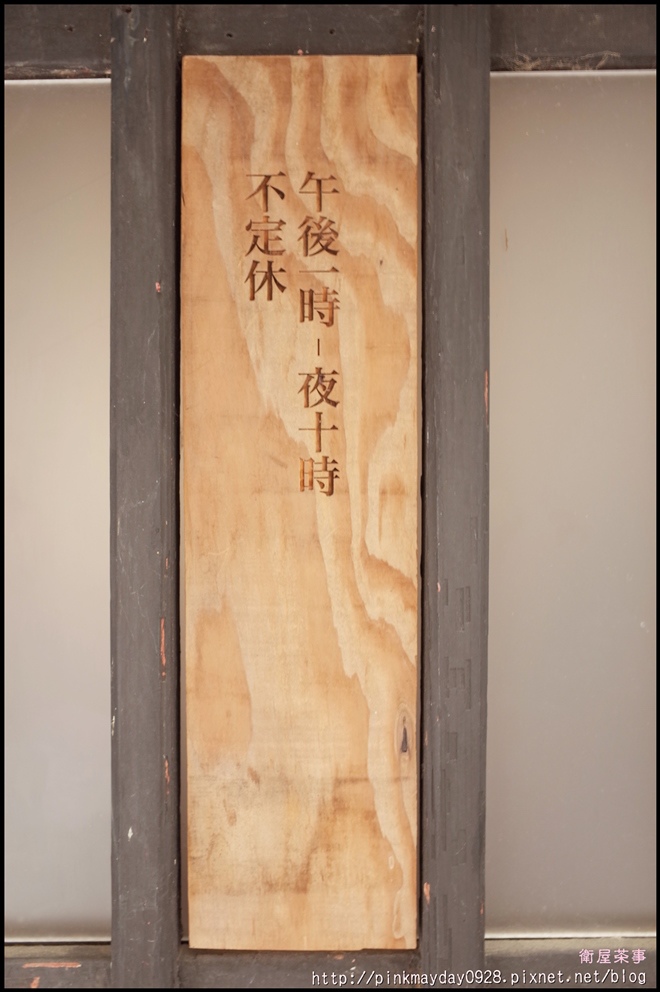 午後一時－夜十時
不定休
衛屋茶事
http://pinkmayday0928.pixnet.net/blog